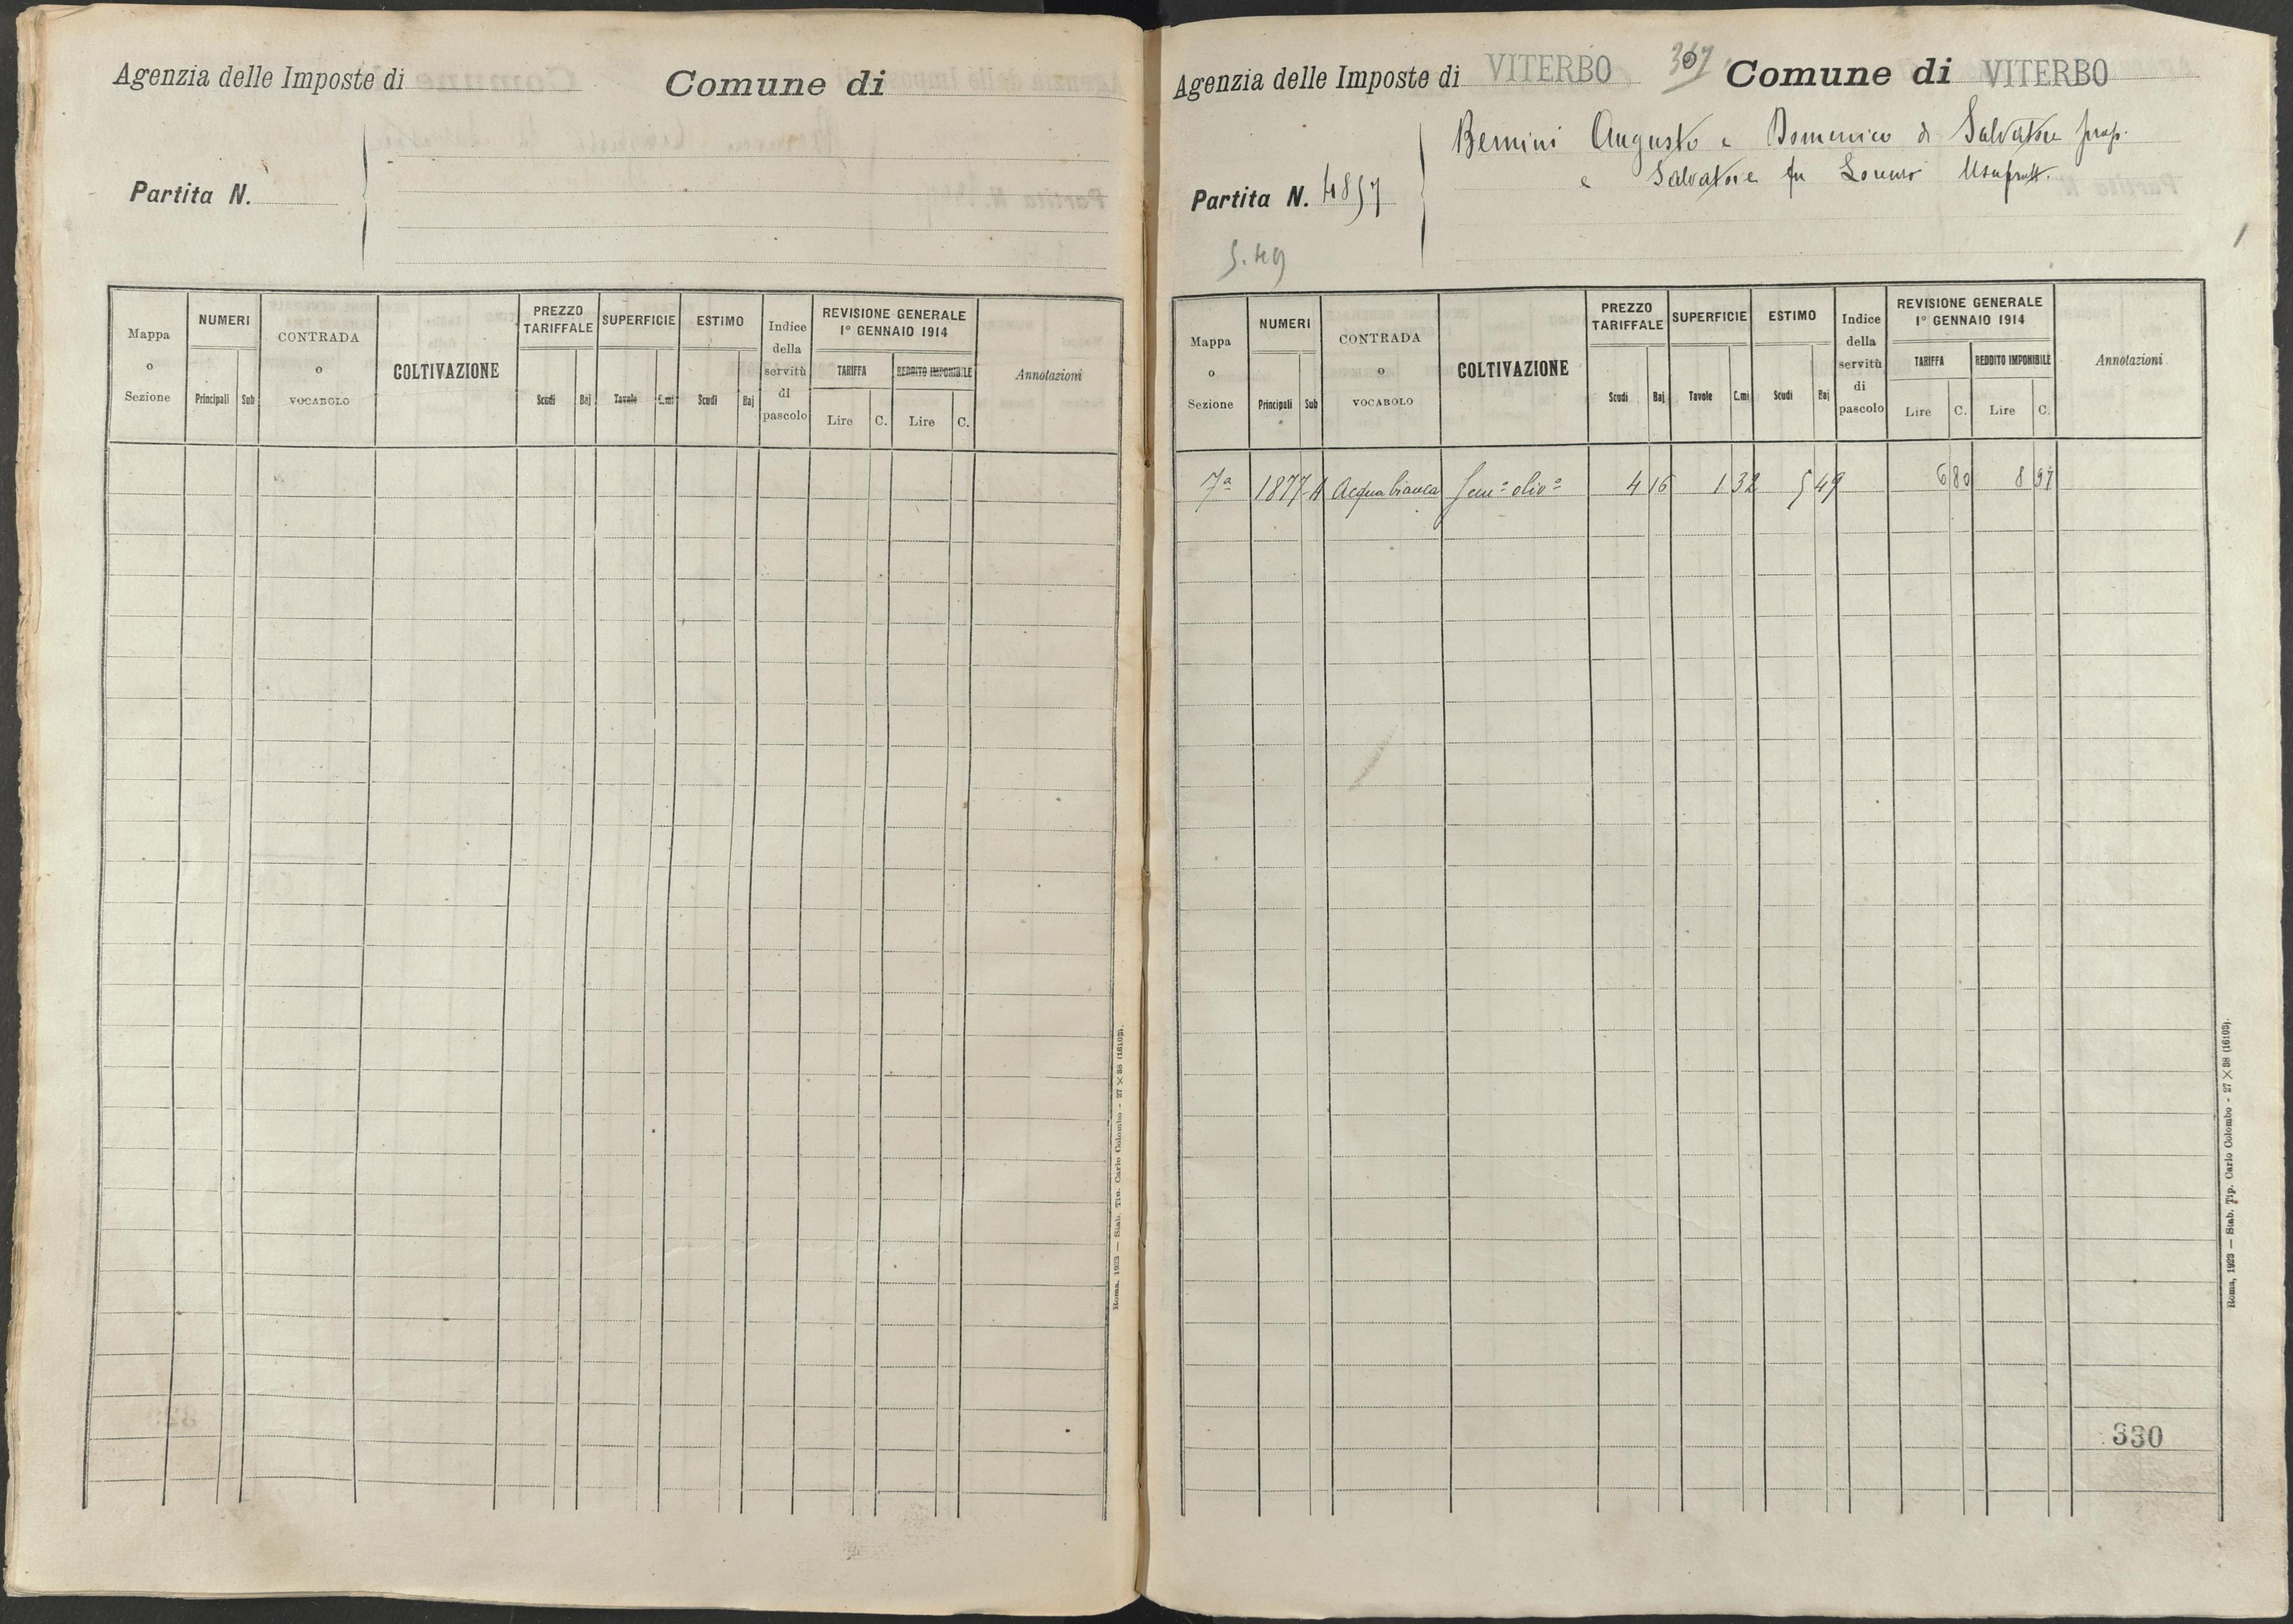 Agenzia delle Imposte di
Comune di
Partita N.
Mappa o Sezione
NUMERI
Principali Sub
CONTRADA o VOCABOLO
COLTIVAZIONE
PREZZO TARIFFALE
Scudi Baj
SUPERFICIE
Tavole C.mi
ESTIMO
Scudi Baj
Indice della servitù di pascolo
REVISIONE GENERALE
1° GENNAIO 1914
TARIFFA
REDDITO IMPONIBILE
Lire C. Lire C.
Annotazioni
Roma, 1923 — Stab. Tip. Carlo Colombo - 27 × 38 (16103).
Agenzia delle Imposte di VITERBO
Comune di VITERBO
Bernini Augusto e Domenico di Salvatore prop.
e Salvatore fu Lorenzo Usufrutt.
Partita N. 4857
5.49
Mappa o Sezione
NUMERI
Principali Sub
CONTRADA o VOCABOLO
COLTIVAZIONE
PREZZO TARIFFALE
Scudi Baj
SUPERFICIE
Tavole C.mi
ESTIMO
Scudi Baj
Indice della servitù di pascolo
REVISIONE GENERALE
1° GENNAIO 1914
TARIFFA
REDDITO IMPONIBILE
Lire C. Lire C.
Annotazioni
7a 1877 A Acqua bianca Sem.o oliv.o 4 16 1 32 5 49 6 80 8 97
330
Roma, 1923 — Stab. Tip. Carlo Colombo - 27 × 38 (16103).